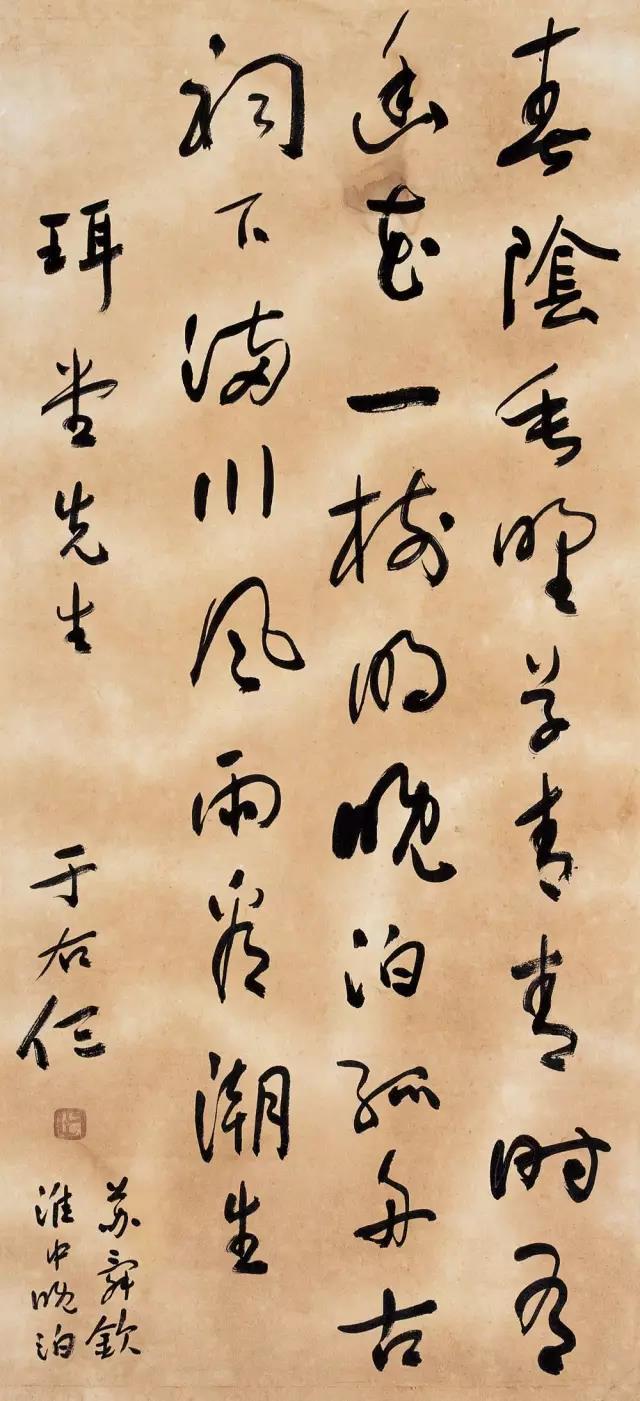 春陰垂野草青青時有
幽花一樹明晚泊孤舟古
祠下滿川風雨看潮生
珥堂先生
于右任
蘇舜欽
淮中晚泊